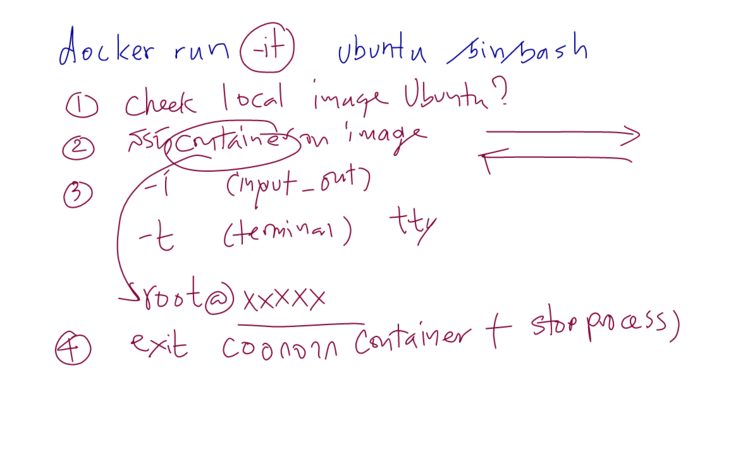 docker run -it ubuntu /bin/bash
① check local image Ubuntu?
② สร้าง container จาก image
③ -i (input_out)
-t (terminal) tty
root@xxxxx
④ exit (ออกจาก Container + stop process)